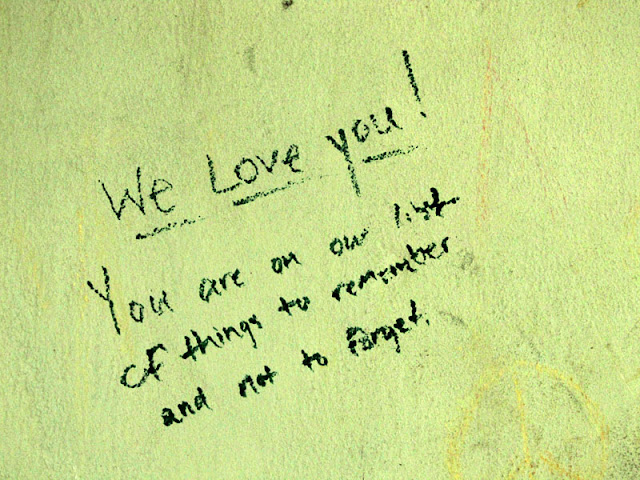 We Love you!
You are on our list
of things to remember
and not to forget.